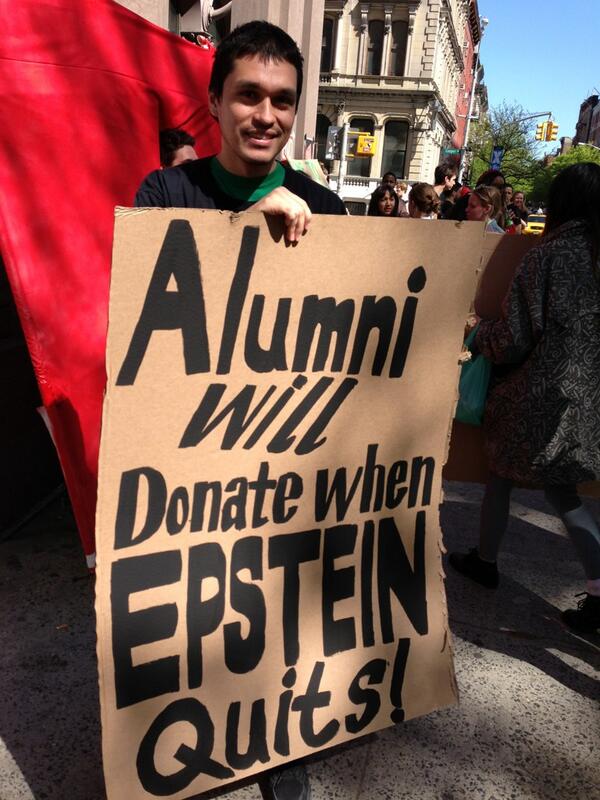 Alumni
will
Donate when
EPSTEIN
Quits!